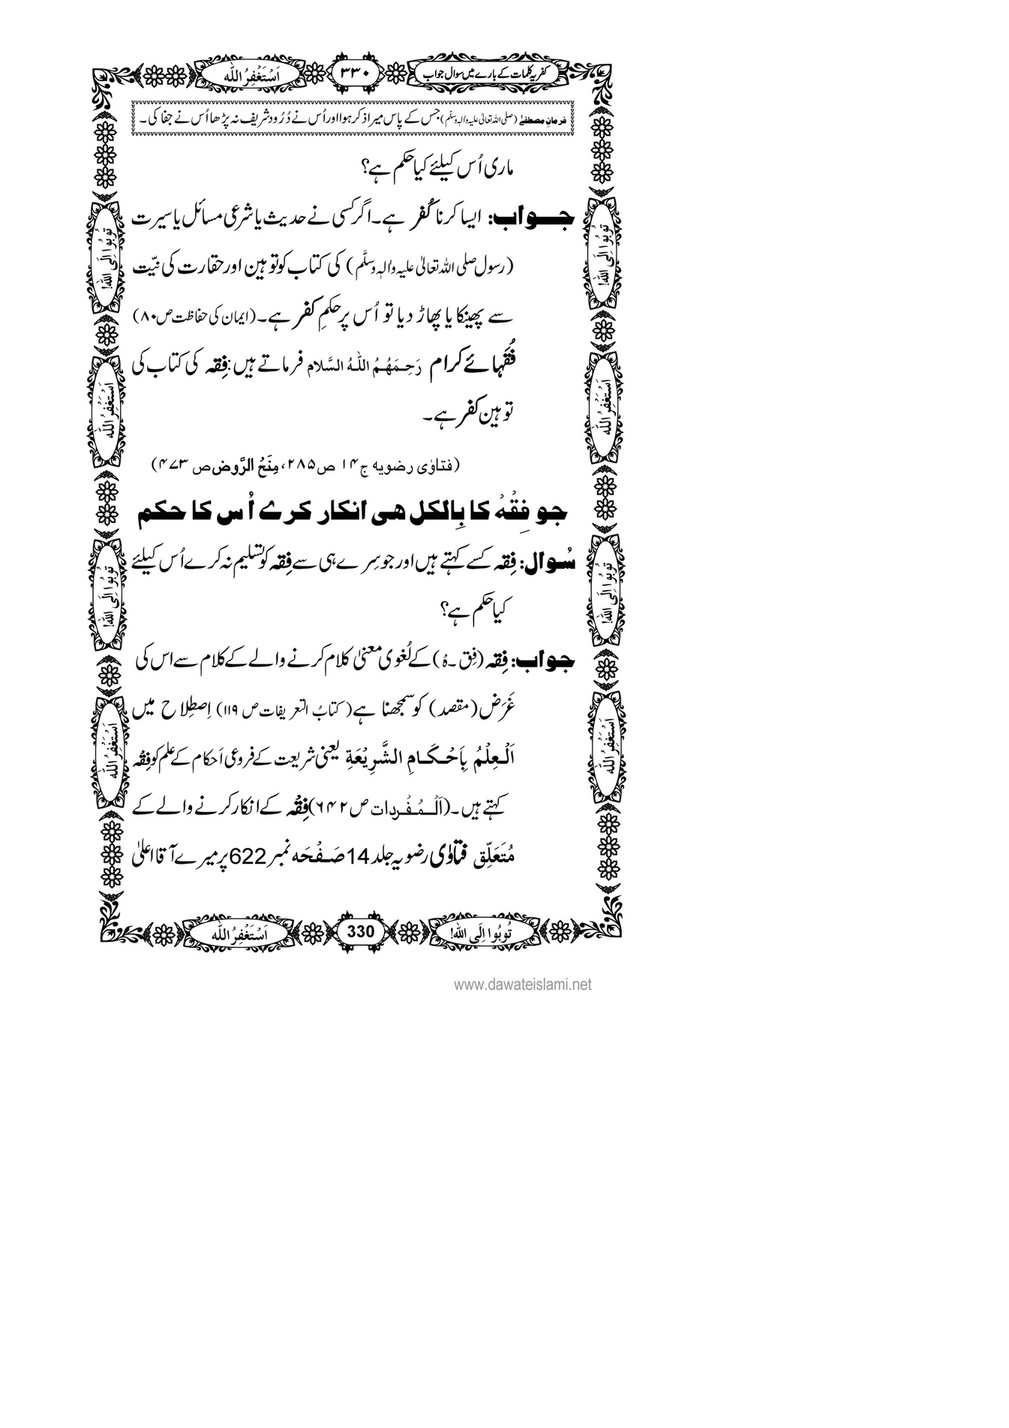 کفریہ کلمات کے بارے میں سوال جواب
۳۳۰
اَسْتَغْفِرُ اللّٰه
فرمانِ مصطفےٰ (صلی اللہ تعالیٰ علیہ واٰلہٖ وسلّم) جس کے پاس میرا ذکر ہوا اور اُس نے دُرُود شریف نہ پڑھا اُس نے جفا کی۔
ماری اُس کیلئے کیا حکم ہے؟
جواب: ایسا کرنا کُفر ہے۔ اگر کسی نے حدیث یا شرعی مسائل یا سیرت
(رسول صلی اللہ تعالیٰ علیہ واٰلہٖ وسلَّم) کی کتاب کو توہین اور حقارت کی نیّت
سے پھینکا یا پھاڑ دیا تو اُس پر حکمِ کفر ہے۔ (ایمان کی حفاظت ص۸۰)
فُقَہائے کرام رَحِمَهُمُ اللّٰهُ السَّلام فرماتے ہیں: فِقہ کی کتاب کی
توہین کفر ہے۔
(فتاوٰی رضویه ج۱۴ ص۲۸۵، مِنَحُ الرَّوض ص ۴۷۳)
جو فِقْهْ کا بِالکل هی انکار کرے اُس کا حکم
سُوال: فِقہ کسے کہتے ہیں اور جو سِرے ہی سے فِقہ کو تسلیم نہ کرے اُس کیلئے
کیا حکم ہے؟
جواب: فِقہ (فِق۔ہْ) کے لُغوی معنیٰ کلام کرنے والے کے کلام سے اس کی
غَرَض (مقصد) کو سمجھنا ہے (کتابُ التعریفات ص ۱۱۹) اِصطِلاح میں
اَلْعِلْمُ بِاَحْکَامِ الشَّرِیْعَةِ یعنی شریعت کے فروعی اَحکام کے علم کو فِقْہ
کہتے ہیں۔ (اَلْمُفْردات ص ۶۴۲) فِقْہ کے انکار کرنے والے کے
مُتَعَلِّق فتاوٰی رضویہ جلد 14 صَفْحَه نمبر 622 پر میرے آقا اعلیٰ
تُوبُوا اِلَی اللّٰه!
اَسْتَغْفِرُ اللّٰه
تُوبُوا اِلَی اللّٰه!
اَسْتَغْفِرُ اللّٰه
تُوبُوا اِلَی اللّٰه!
اَسْتَغْفِرُ اللّٰه
تُوبُوا اِلَی اللّٰه!
اَسْتَغْفِرُ اللّٰه
تُوبُوا اِلَی اللّٰه!
330
اَسْتَغْفِرُ اللّٰه
www.dawateislami.net